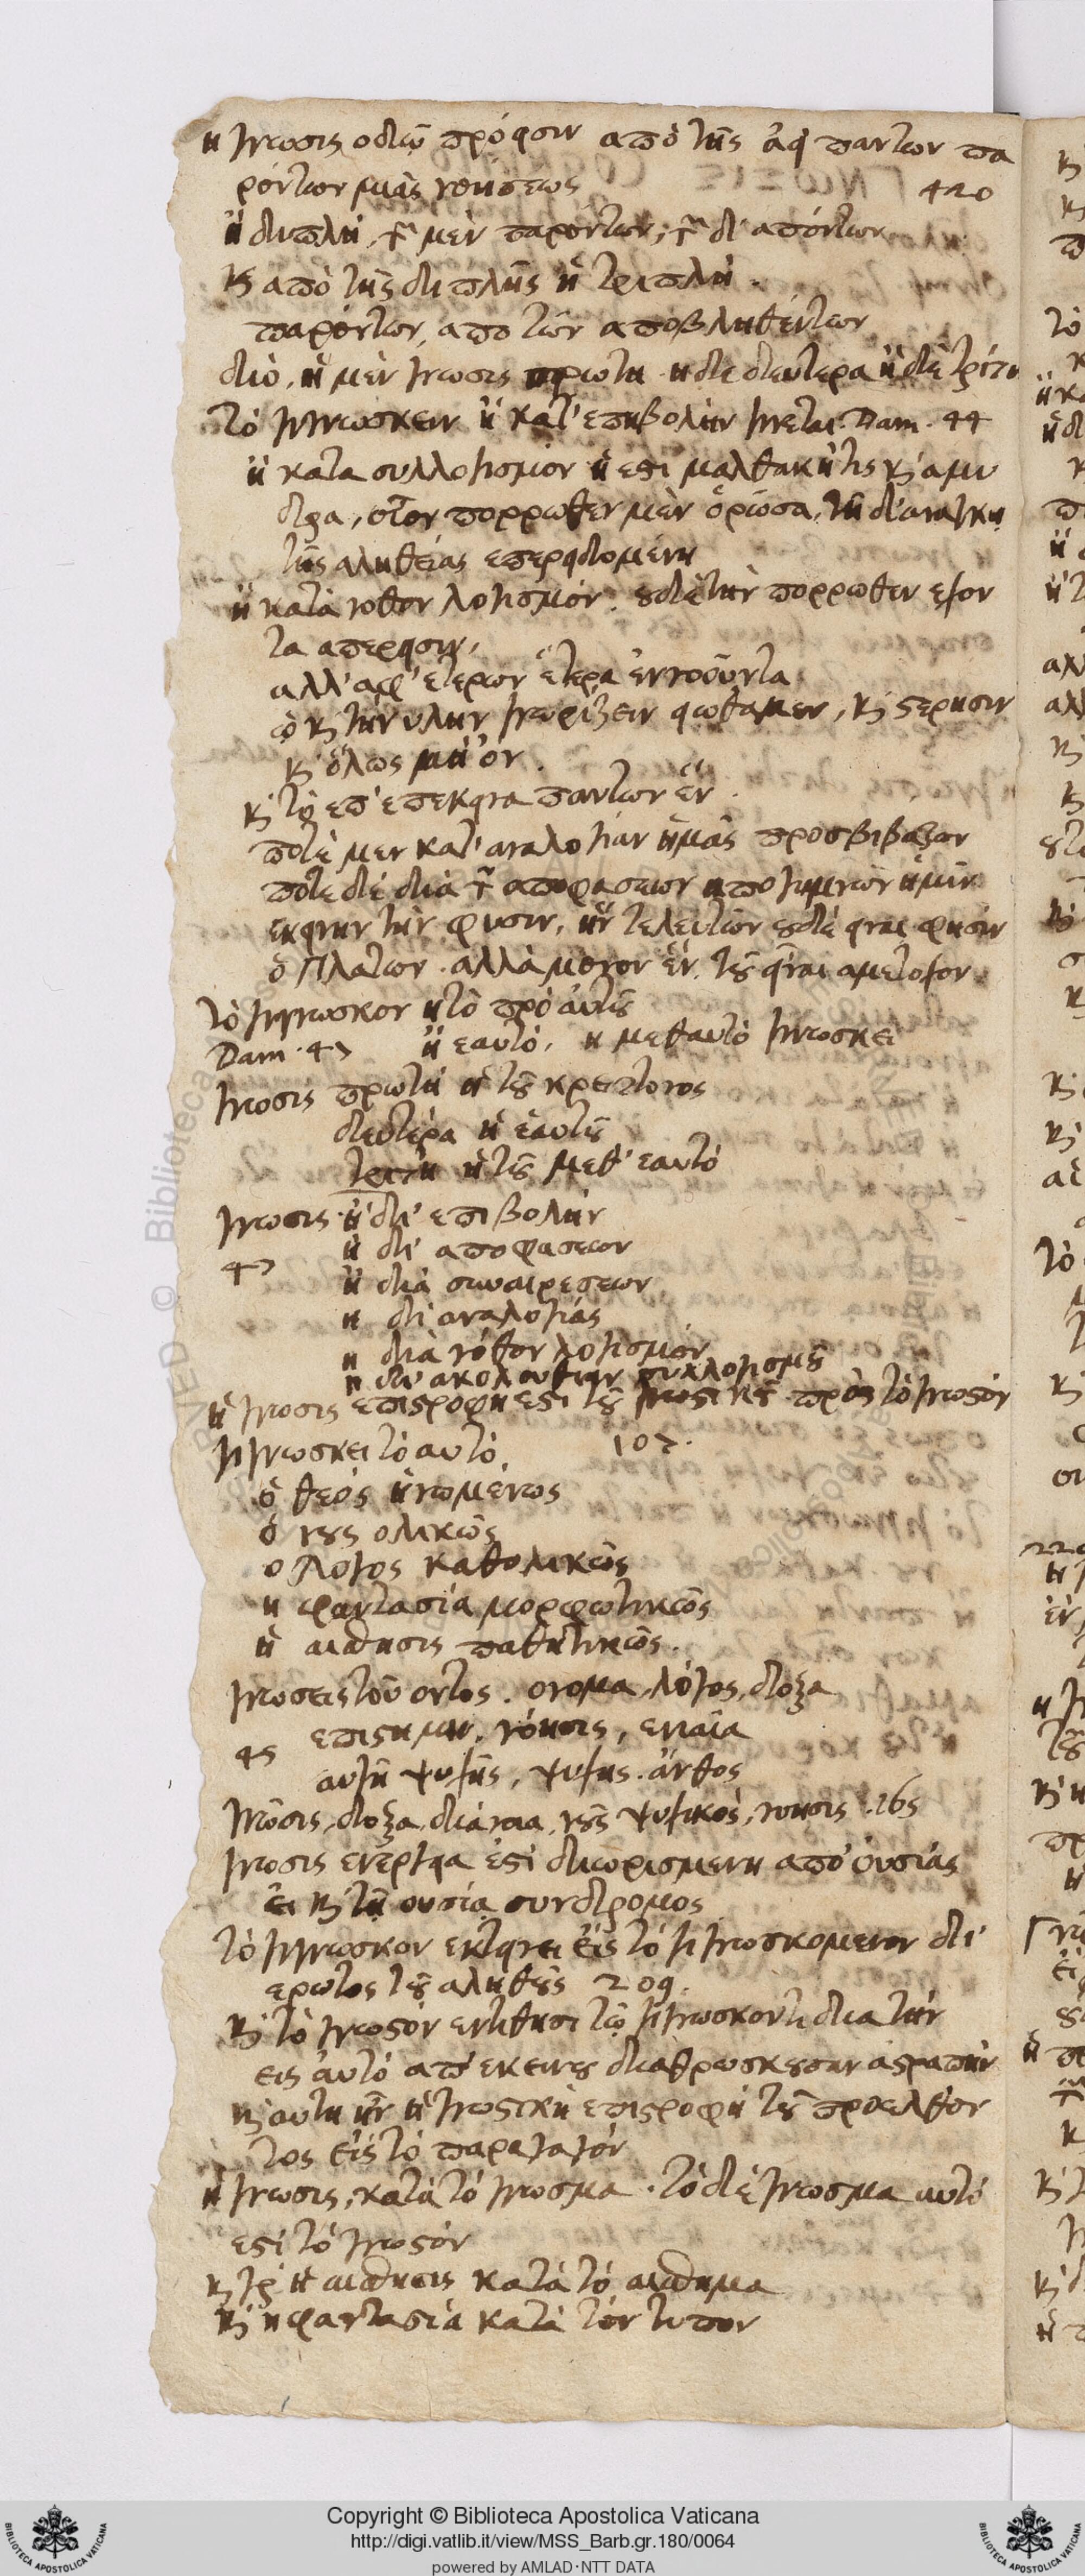 η γνωσις οδω πρόεισιν απὸ της ἀεὶ παντων πα
ρόντων μιᾶς νοήσεως 420
ἡ διπλη, των μὲν παρόντων, των δ' απόντων
κ απὸ της διπλης ἡ τριπλη.
παρόντων, απο των αποβληθέντων
διὸ, ἡ μὲν γνωσις πρωτη. η δε δευτερα ἡ δὲ τρίτη
Τὸ γιγνωσκειν ἢ κατ' επιβολὴν γινεται. Dam. 44
ἢ κατα συλλογισμὸν ἡ εστι μαλθακή τις κ αμυ
δρα, οἷον πορρωθεν μὲν ὁρῶσα, τῇ δ' αναγκη
της αληθείας επερειδομένη
ἢ κατὰ νοθον λογισμόν. ουδὲ τὴν πορρωθεν εχον
τα απερεισιν,
αλλ' αφ' ετερων ἕτερα ἐννοοῦντα
ᾧ κ τὴν υλην γνωρίζειν ειωθαμεν, κ στερησιν
κ ὅλως μὴ ὂν.
κ τὸ επ' επεκεινα παντων ἓν.
ποτὲ μεν κατ' αναλογίαν ἡμᾶς προσβιβαζον
ποτε δὲ διὰ των αποφασεων απογυμνοῦν ἡμῖν
εκεινην τὴν φυσιν, ἣν τελευτῶν ουδὲ ειναι φησὶν
ὁ Πλατων. αλλὰ μόνον ἕν. του εἶναι αμετοχον.
Τὸ γιγνωσκον ἢ τὸ πρὸ αὑτου
Dam. 47 ἢ εαυτὸ, η μεθ αυτὸ γινωσκει
γνωσις πρωτη ἡ του κρειττονος
δευτέρα ἡ ἑαυτου
τριτη ἡ του μεθ' εαυτό
γνωσις ἡ δι' επιβολὴν
47 ἢ δι' αποφασεων
ἢ διὰ συναιρεσεων
η δι' αναλογίας
η διὰ νόθον λογισμὸν
η δι' ακολουθιαν συλλογισμου
ἡ γνωσις επιστροφη εστι του γνωστικου πρὸς τὸ γνωστὸν
γιγνωσκει τὸ αυτὸ, 107.
ὁ θεὸς ἡνωμένως
ὁ νους ολικῶς
ο λογος καθολικῶς
η φαντασία μορφωτικῶς
ἡ αισθησις παθητικῶς.
γνωσεις τοῦ οντος. ονομα, λόγος, δοξα
επιστημη, νόησις, ενιαῖα
45 αυγὴ ψυχῆς, ψυχης. ἄνθος
γνῶσις, δοξα, διάνοια, νους ψυχικος, νοησις. 165
γνωσις ενέργεια ἐστὶ διωρισμενη απὸ ουσίας
εἰ κ τῇ ουσίᾳ συνδρομος
τὸ γιγνωσκον εκτεινει εἰς τὸ γιγνωσκομενον δι'
ερωτος του αληθους 209.
κ τὸ γνωστὸν εντιθησι τῷ γιγνωσκοντι δια τὴν
εις ἀυτὸ απ' εκεινου διαθρωσκουσαν αστραπὴν
κ αυτη ἦν ἡ γνωστικὴ επιστροφὴ του προελθον
τος εἰς τὸ παραγαγὸν
ἡ γνωσις, κατὰ τὸ γνωσμα. τὸ δὲ γνωσμα αυτό
εστὶ τὸ γνωστὸν
κ γὰρ ἡ αισθησις κατὰ τὸ αισθημα
κ η φαντασία κατὰ τὸν τυπον
Copyright © Biblioteca Apostolica Vaticana
http://digi.vatlib.it/view/MSS_Barb.gr.180/0064
powered by AMLAD·NTT DATA